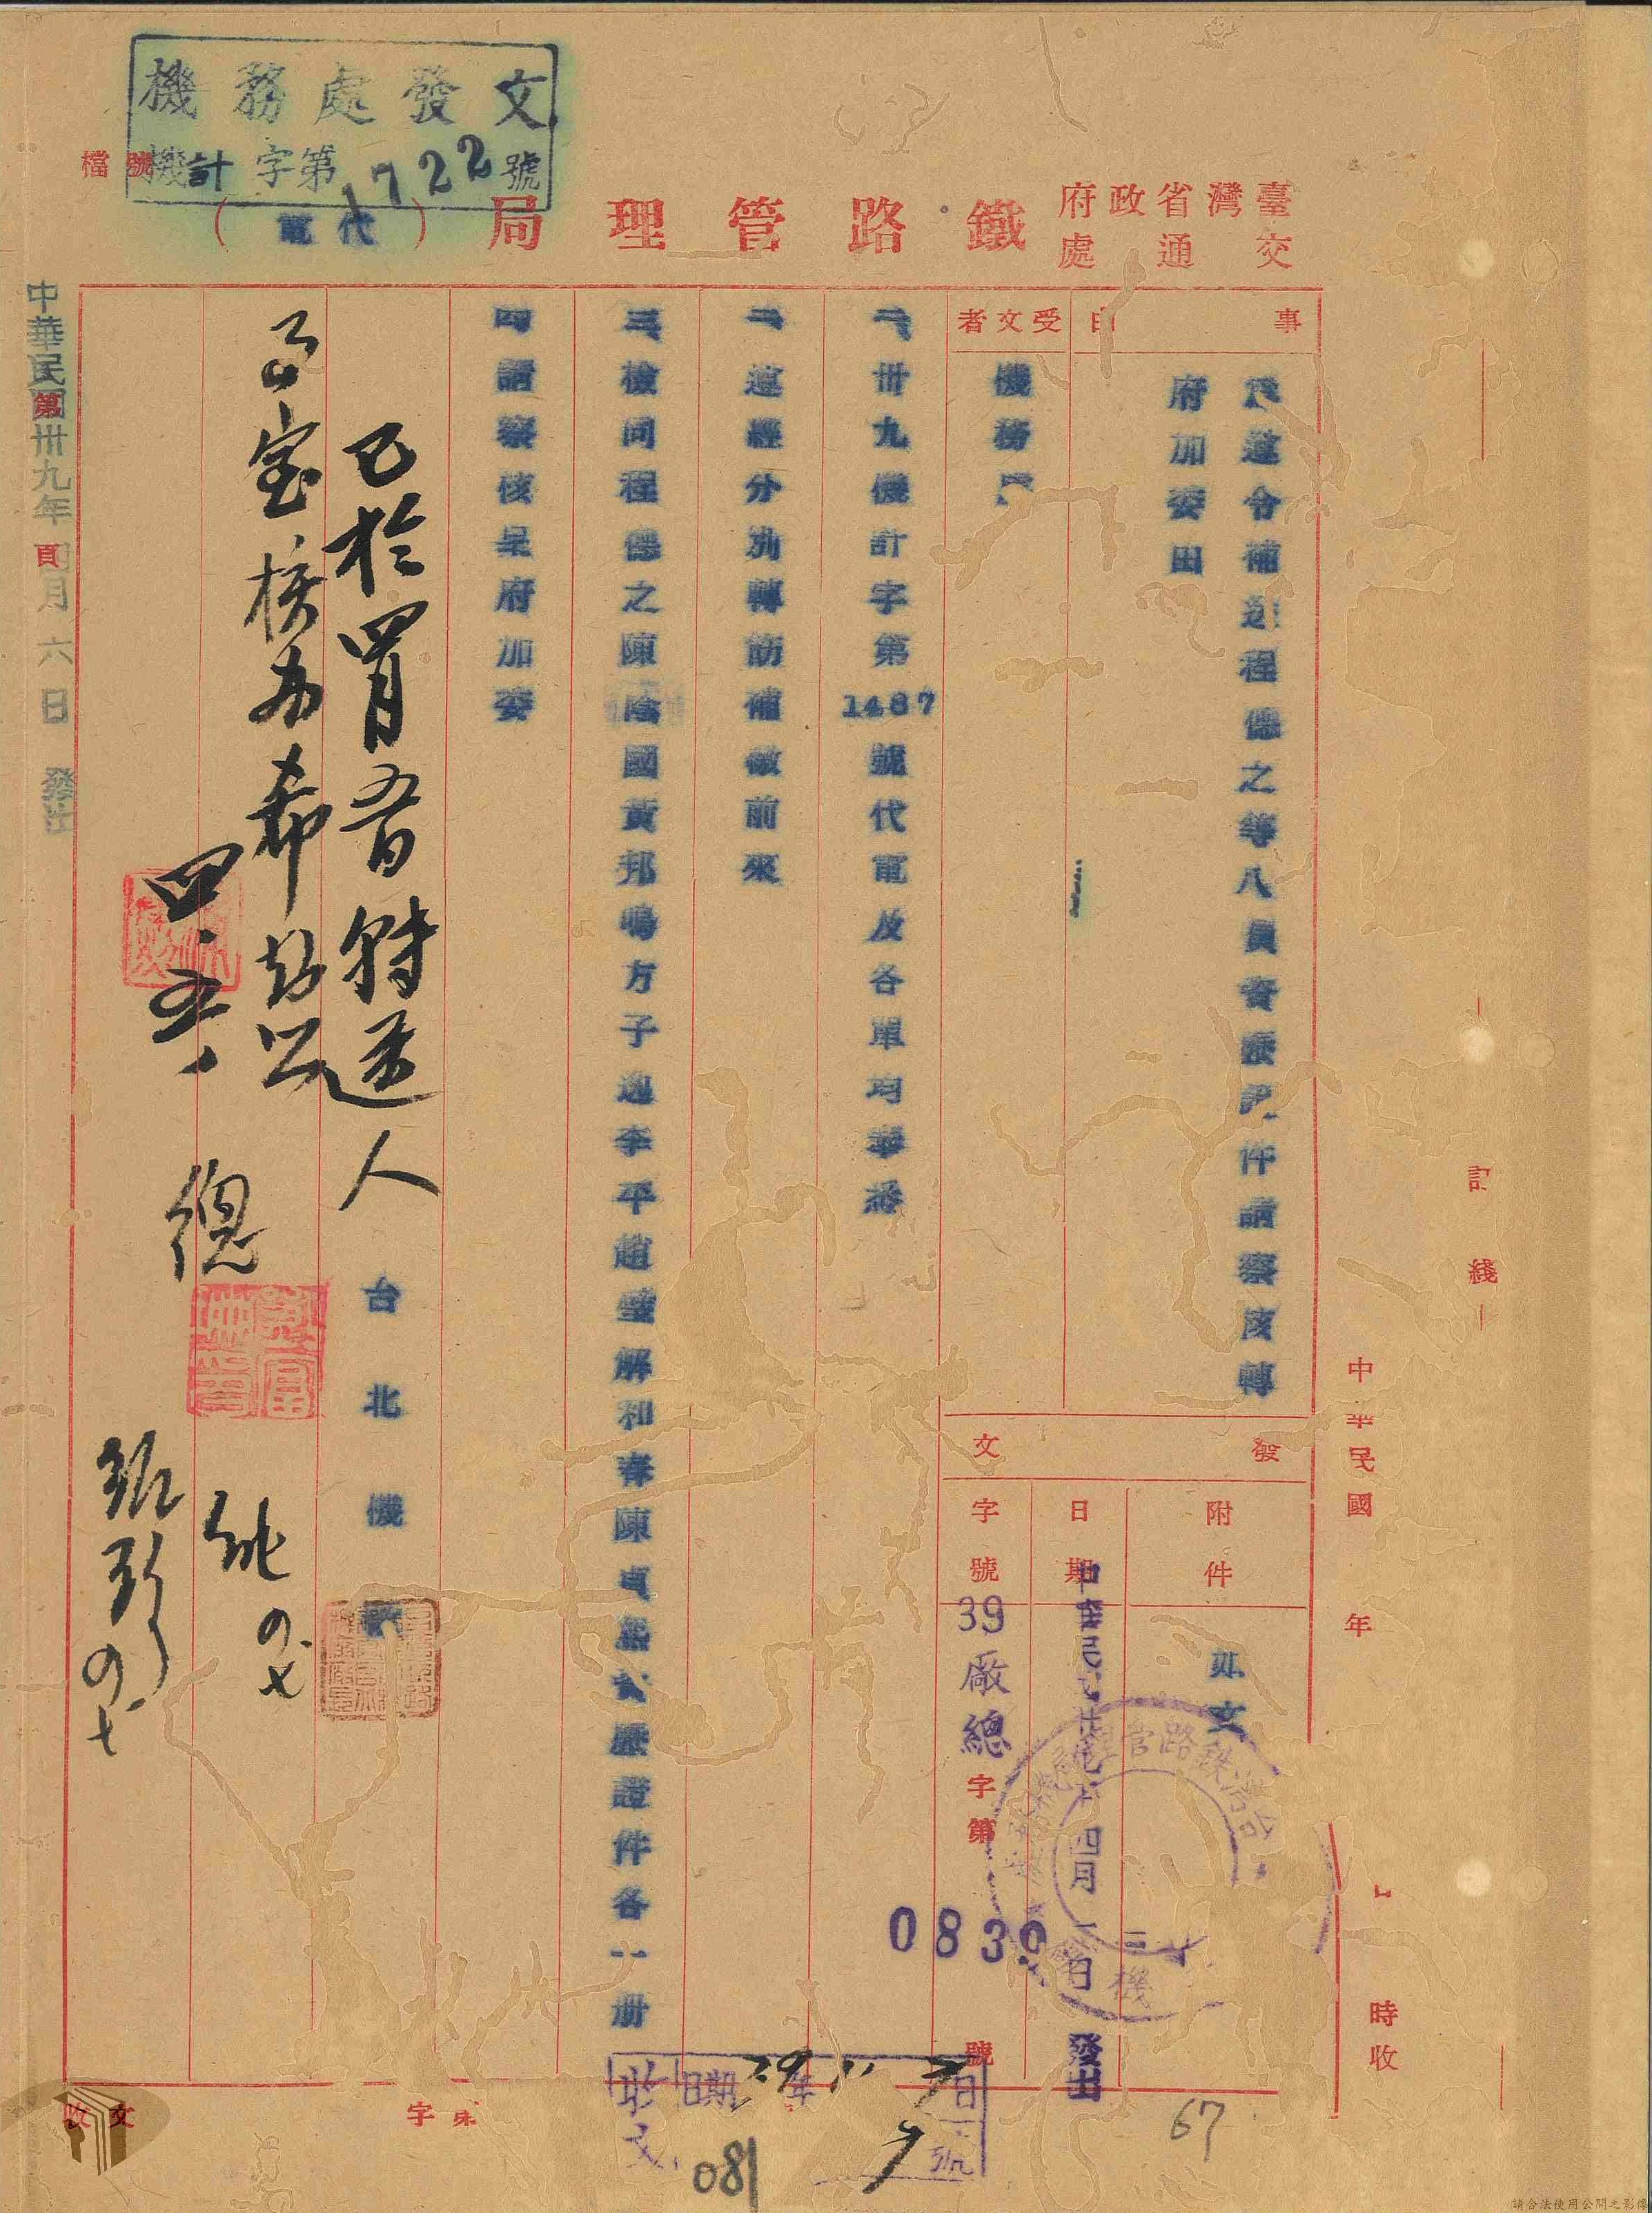 機務處發文
機計字第1722號
檔號
臺灣省政府
交通處
鐵路管理局
(代電)
事由
遵令補送程德之等八員資歷證件請察核轉
府加委由
受文者
機務處
發文
附件
如文
日期
中華民國卅九年四月三日發出
字號
39廠總字第0839號
一、卅九機計字第1487號代電及各單均奉悉
二、遵經分別轉飭補繳前來
三、檢同程德之陳蔭國黃邦鳴方子逸李平趙璧解和春陳貞熙資歷證件各一册
四、請察核呈府加委
台北機
已於四月五日轉送人
子室核為希
四.五.
總
中華民國卅九年四月六日發出
第
頁
記
綫
中華民國
年
日
時收
收文
字第
收文
日期
39年
7日
號
081
67
請合法使用公開之影像